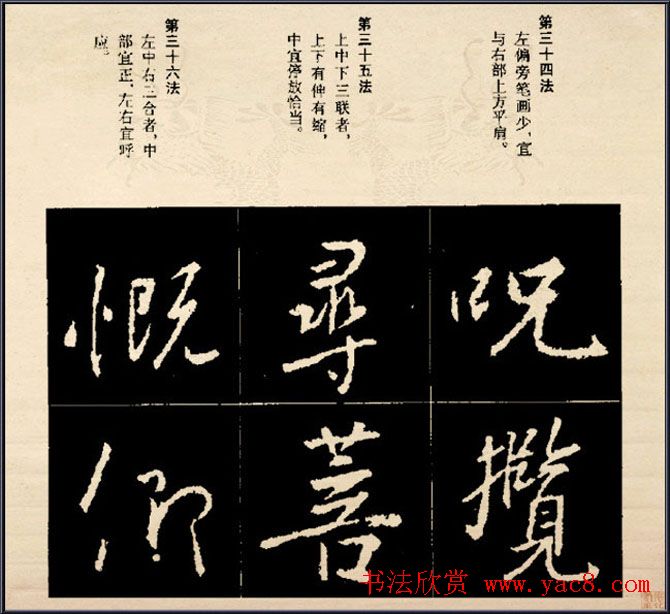 第三十四法
左偏旁笔画少，宜
与右部上方平肩。
第三十五法
上中下三联者，
上下有伸有缩，
中宜停放恰当。
第三十六法
左中右三合者，中
部宜正，左右宜呼
应。
呪攬
尋菩
慨仰
书法欣赏 www.yac8.com